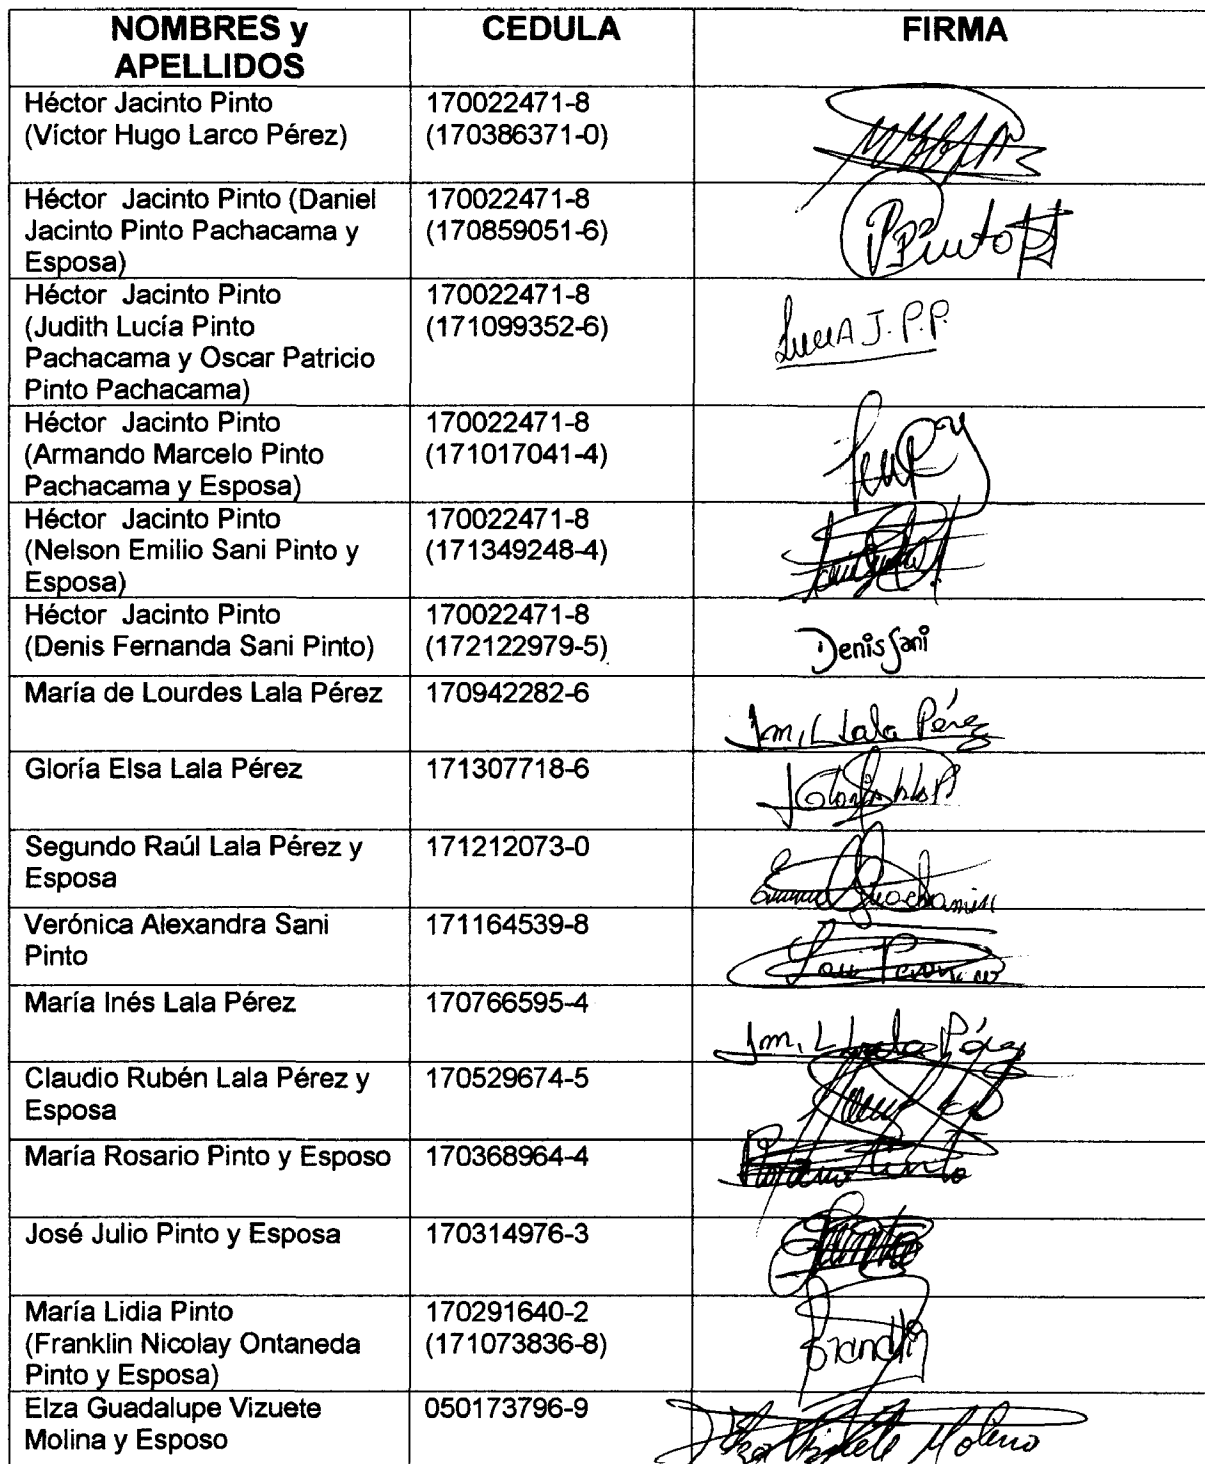 NOMBRES y
APELLIDOS
CEDULA
FIRMA
Héctor Jacinto Pinto
(Víctor Hugo Larco Pérez)
170022471-8
(170386371-0)
Héctor Jacinto Pinto (Daniel
Jacinto Pinto Pachacama y
Esposa)
170022471-8
(170859051-6)
Pinto
Héctor Jacinto Pinto
(Judith Lucía Pinto
Pachacama y Oscar Patricio
Pinto Pachacama)
170022471-8
(171099352-6)
Lucia J. P.P.
Héctor Jacinto Pinto
(Armando Marcelo Pinto
Pachacama y Esposa)
170022471-8
(171017041-4)
Héctor Jacinto Pinto
(Nelson Emilio Sani Pinto y
Esposa)
170022471-8
(171349248-4)
Héctor Jacinto Pinto
(Denis Fernanda Sani Pinto)
170022471-8
(172122979-5)
Denis Sani
María de Lourdes Lala Pérez
170942282-6
Lala Pérez
Gloría Elsa Lala Pérez
171307718-6
Segundo Raúl Lala Pérez y
Esposa
171212073-0
Verónica Alexandra Sani
Pinto
171164539-8
María Inés Lala Pérez
170766595-4
Pérez
Claudio Rubén Lala Pérez y
Esposa
170529674-5
María Rosario Pinto y Esposo
170368964-4
Rosario Pinto
José Julio Pinto y Esposa
170314976-3
María Lidia Pinto
(Franklin Nicolay Ontaneda
Pinto y Esposa)
170291640-2
(171073836-8)
Elza Guadalupe Vizuete
Molina y Esposo
050173796-9
Elza Vizuete Molina